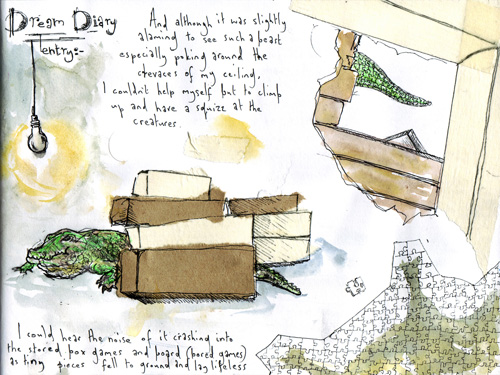 Dream Diary
entry:-
And although it was slightly
alaming to see such a beast
especially poking around the
crevaces of my ceiling,
I couldn't help myself but to climp
up and have a squizz at the
creatures.
I could hear the noise of it crashing into
the stored box games and board (bored games)
as tiny pieces fell to ground and lay lifeless